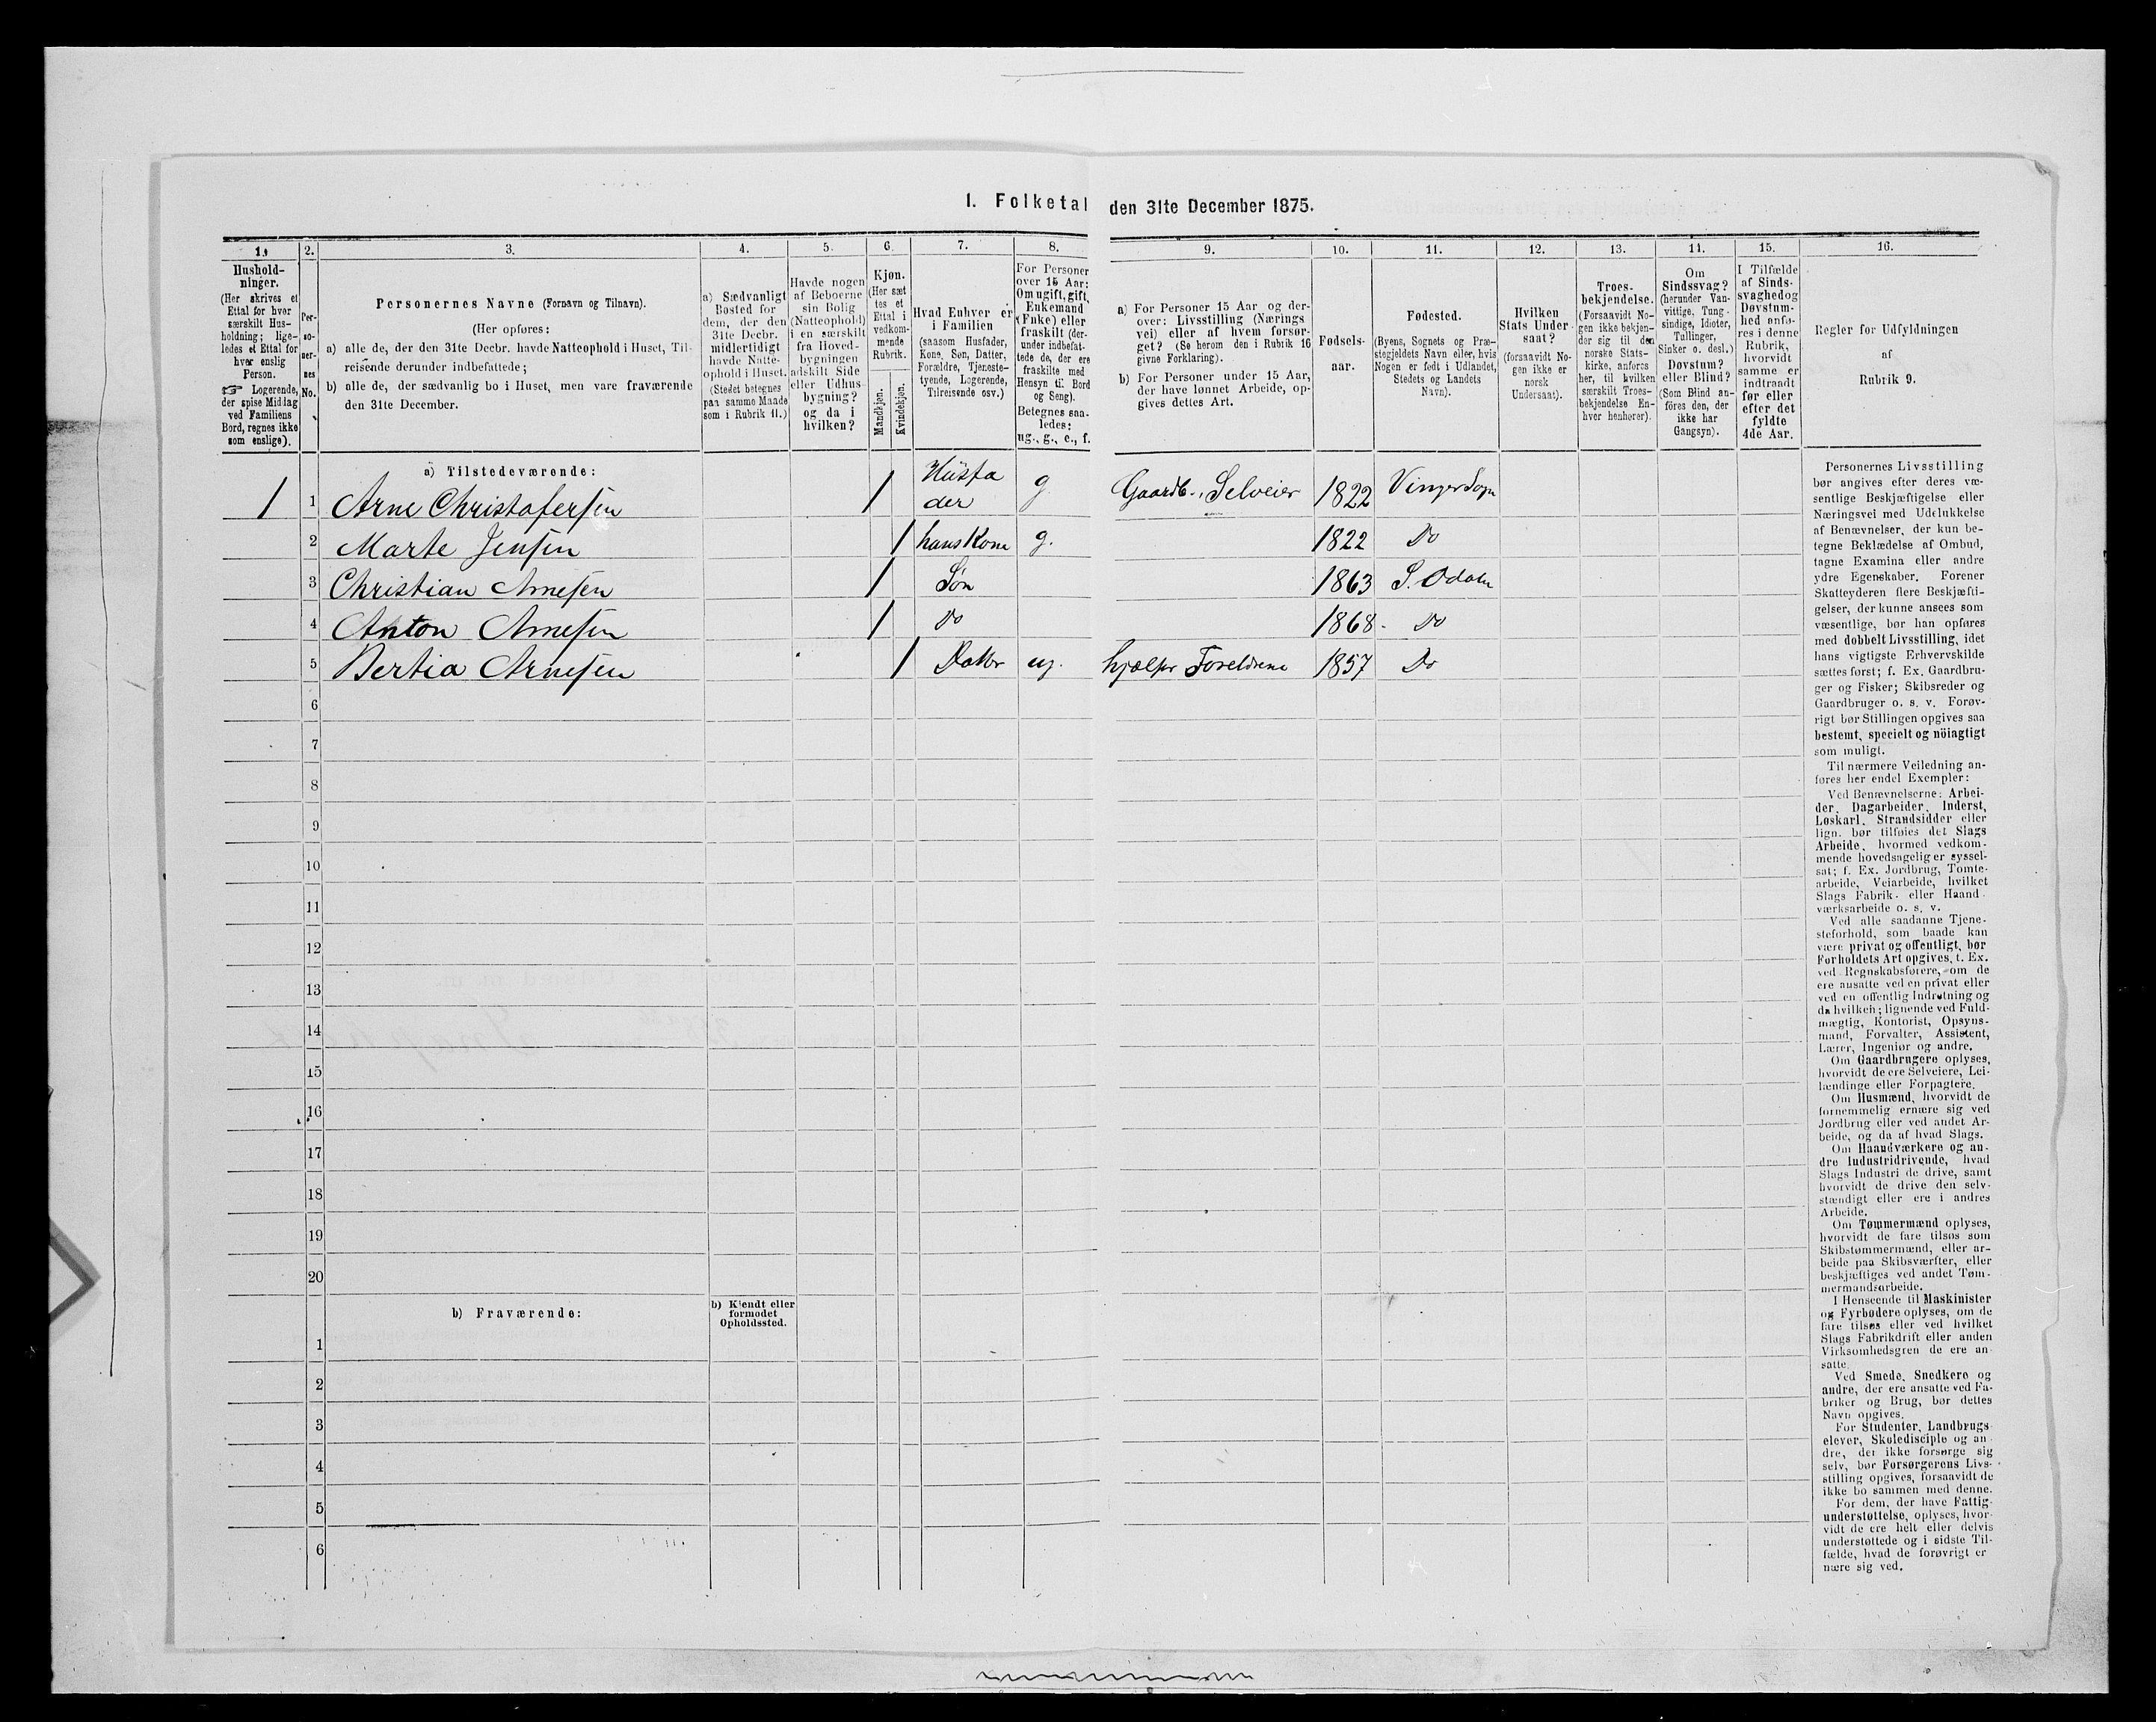 I. Folketal den 31te December 1875.
1. 2. 3. 4. 5. 6. 7. 8. 9. 10. 11. 12. 13. 14. 15. 16.
Hushold-
ninger.
(Her skrives et
Ettal for hver
særskilt Hus-
holdning; lige-
ledes et Ettal for
hver enslig
Person.
☞ Logerende,
der spise Middag
ved Familiens
Bord, regnes ikke
som enslige).
Per-
so-
ner-
nes
No.
Personernes Navne (Fornavn og Tilnavn).
(Her opføres:
a) alle de, der den 31te Decbr. havde Natteophold i Huset, Til-
reisende derunder indbefattede;
b) alle de, der sædvanlig bo i Huset, men vare fraværende
den 31te December.
a) Sædvanligt
Bosted for
dem, der den
31te Decbr.
midlertidigt
havde Natte-
ophold i Huset.
(Stedet betegnes
paa samme Maade
som i Rubrik 11.)
Havde nogen
af Beboerne
sin Bolig
(Natteophold)
i en særskilt
fra Hoved-
bygningen
adskilt Side
eller Udhus-
bygning?
og da i
hvilken?
Kjøn.
(Her sæt
tes et
Ettal i
vedkom-
mende
Rubrik.
Mandkjøn.
Kvindekjøn.
Hvad Enhver er
i Familien
(saasom Husfader,
Kone, Søn, Datter,
Forældre, Tjeneste-
tyende, Logerende,
Tilreisende osv.)
For Personer
over 15 Aar:
Om ugift, gift,
Enkemand
(Enke) eller
fraskilt (der-
under indbefat-
tede de, der ere
fraskilte med
Hensyn til Bord
og Seng).
Betegnes saa-
ledes:
ug., g., e., f.
a) For Personer 15 Aar og der-
over: Livsstilling (Nærings
vei) eller af hvem forsør-
get? (Se herom den i Rubrik 16
givne Forklaring).
b) For Personer under 15 Aar,
der have lønnet Arbeide, op-
gives dettes Art.
Fødsels-
aar.
Fødested.
(Byens, Sognets og Præ-
stegjeldets Navn eller, hvis
Nogen er født i Udlandet,
Stedets og Landets
Navn).
Hvilken
Stats Under-
saat?
(forsaavidt No-
gen ikke er
norsk
Undersaat).
Troes-
bekjendelse.
(Forsaavidt No-
gen ikke bekjen-
der sig til den
norske Stats-
kirke, anføres
her, til hvilken
særskilt Troes-
bekjendelse En-
hver henhører).
Om
Sindssvag?
(herunder Van-
vittige, Tung-
sindige, Idioter,
Tullinger,
Sinker o. desl.)
Døvstum?
eller Blind?
(Som Blind an-
føres den, der
ikke har
Gangsyn).
I Tilfælde
af Sinds-
svaghed og
Døvstum-
hed anfø-
res i denne
Rubrik,
hvorvidt
samme er
indtraadt
før eller
efter det
fyldte
4de Aar.
Regler for Udfyldningen
af
Rubrik 9.
a) Tilstedeværende:
1 1 Arne Christofersen 1 Husfader g Gaardb., Selveier 1822 Vinger Sogn
2 Marte Jensen 1 hans Kone g. 1822 Do
3 Christian Arnesen 1 Søn 1863 S. Odalen
4 Anton Arnesen 1 Do 1868 Do
5 Bertia Arnesen 1 Datter ug. hjælper Foreldrene 1857 Do
6
7
8
9
10
11
12
13
14
15
16
17
18
19
20
b) Fraværende:
b) Kjendt eller
formodet
Opholdssted.
1
2
3
4
5
6
Personernes Livsstilling
bør angives efter deres væ-
sentlige Beskjæftigelse eller
Næringsvei med Udelukkelse
af Benævnelser, der kun be-
tegne Beklædelse af Ombud,
tagne Examina eller andre
ydre Egenskaber. Forener
Skatteyderen flere Beskjæfti-
gelser, der kunne ansees som
væsentlige, bør han opføres
med dobbelt Livsstilling, idet
hans vigtigste Erhvervskilde
sættes først; f. Ex. Gaardbru-
ger og Fisker; Skibsreder og
Gaardbruger o. s. v. Forøv-
rigt bør Stillingen opgives saa
bestemt, specielt og nöiagtigt
som muligt.
Til nærmere Veiledning an-
føres her endel Exempler:
Ved Benævnelserne: Arbei-
der, Dagarbeider, Inderst,
Løskarl, Strandsidder eller
lign. bør tilføies det Slags
Arbeide, hvormed vedkom-
mende hovedsagelig er syssel-
sat; f. Ex. Jordbrug, Tomte-
arbeide, Veiarbeide, hvilket
Slags Fabrik- eller Haand-
værksarbeide o. s. v.
Ved alle saadanne Tjene-
steforhold, som baade kan
være privat og offentligt, bør
Forholdets Art opgives, t. Ex.
ved Regnskabsførere, om de
ere ansatte ved en privat eller
ved en offentlig Indretning og
da hvilken; lignende ved Fuld-
mægtig, Kontorist, Opsyns-
mand, Forvalter, Assistent,
Lærer, Ingeniør og andre.
Om Gaardbrugere oplyses,
hvorvidt de ere Selveiere, Lei-
lændinge eller Forpagtere.
Om Husmænd, hvorvidt de
fornemmelig ernære sig ved
Jordbrug eller ved andet Ar-
beide, og da af hvad Slags.
Om Haandværkere og an-
dre Industridrivende, hvad
Slags Industri de drive, samt
hvorvidt de drive den selv-
stændigt eller ere i andres
Arbeide.
Om Tømmermænd oplyses,
hvorvidt de fare tilsøs som
Skibstømmermænd, eller ar-
beide paa Skibsværfter, eller
beskjæftiges ved andet Tøm-
mermandsarbeide.
I Henseende til Maskinister
og Fyrbødere oplyses, om de
fare tilsøs eller ved hvilket
Slags Fabrikdrift eller anden
Virksomhedsgren de ere an-
satte.
Ved Smede, Snedkere og
andre, der ere ansatte ved Fa-
briker og Brug, bør dettes
Navn opgives.
For Studenter, Landbrugs-
elever, Skoledisciple og an-
dre, der ikke forsørge sig
selv, bør Forsørgerens Livs-
stilling opgives, forsaavidt de
ikke bo sammen med denne.
For dem, der have Fattig-
understøttelse, oplyses, hvor-
vidt de ere helt eller delvis
understøttede og i sidste Til-
fælde, hvad de forøvrigt er
nære sig ved.